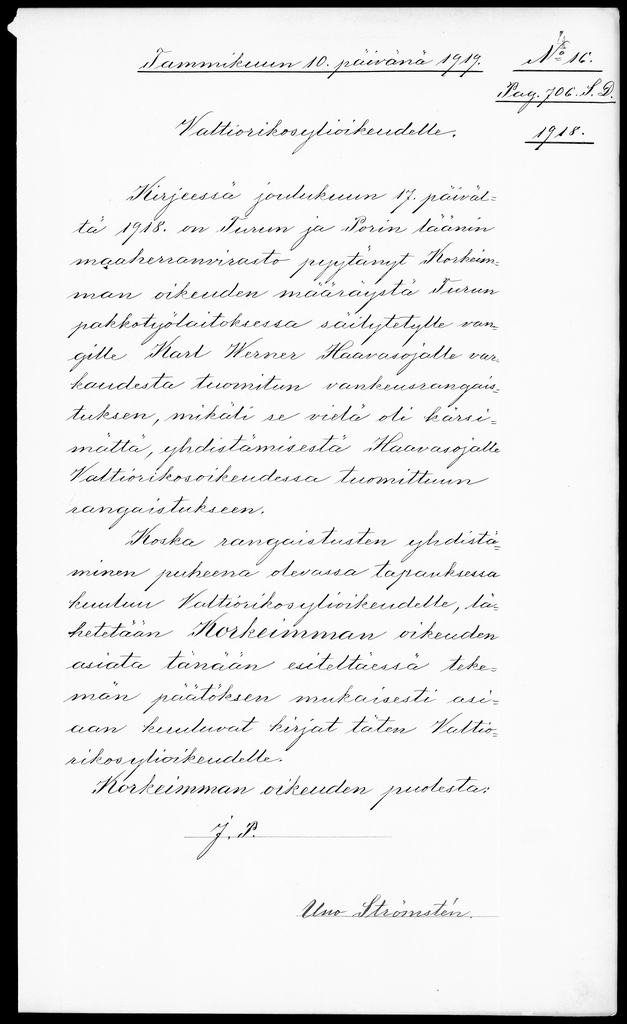 Tammikuun 10. päivänä 1919.
No 16.
Pag. 706. S. D.
1918.
Valtiorikosylioikeudelle.
Kirjeessä joulukuun 17. päiväl=
tä 1918. on Turun ja Porin läänin
maaherranvirasto pyytänyt Korkeim=
man oikeuden määräystä Turun
pakkotyölaitoksessa säilytetylle van=
gille Karl Werner Haavasojalle var=
kaudesta tuomitun vankeusrangais=
tuksen, mikäli se vielä oli kärsi=
mättä, yhdistämisestä Haavasojalle
Valtiorikosoikeudessa tuomittuun
rangaistukseen.
Koska rangaistusten yhdistä=
minen puheena olevassa tapauksessa
kuuluu Valtiorikosylioikeudelle, lä=
hetetään Korkeimman oikeuden
asiata tänään esiteltäessä teke=
män päätöksen mukaisesti asi=
aan kuuluvat kirjat täten Valtio=
rikosylioikeudelle.
Korkeimman oikeuden puolesta:
J. P.
Uno Strömstén.